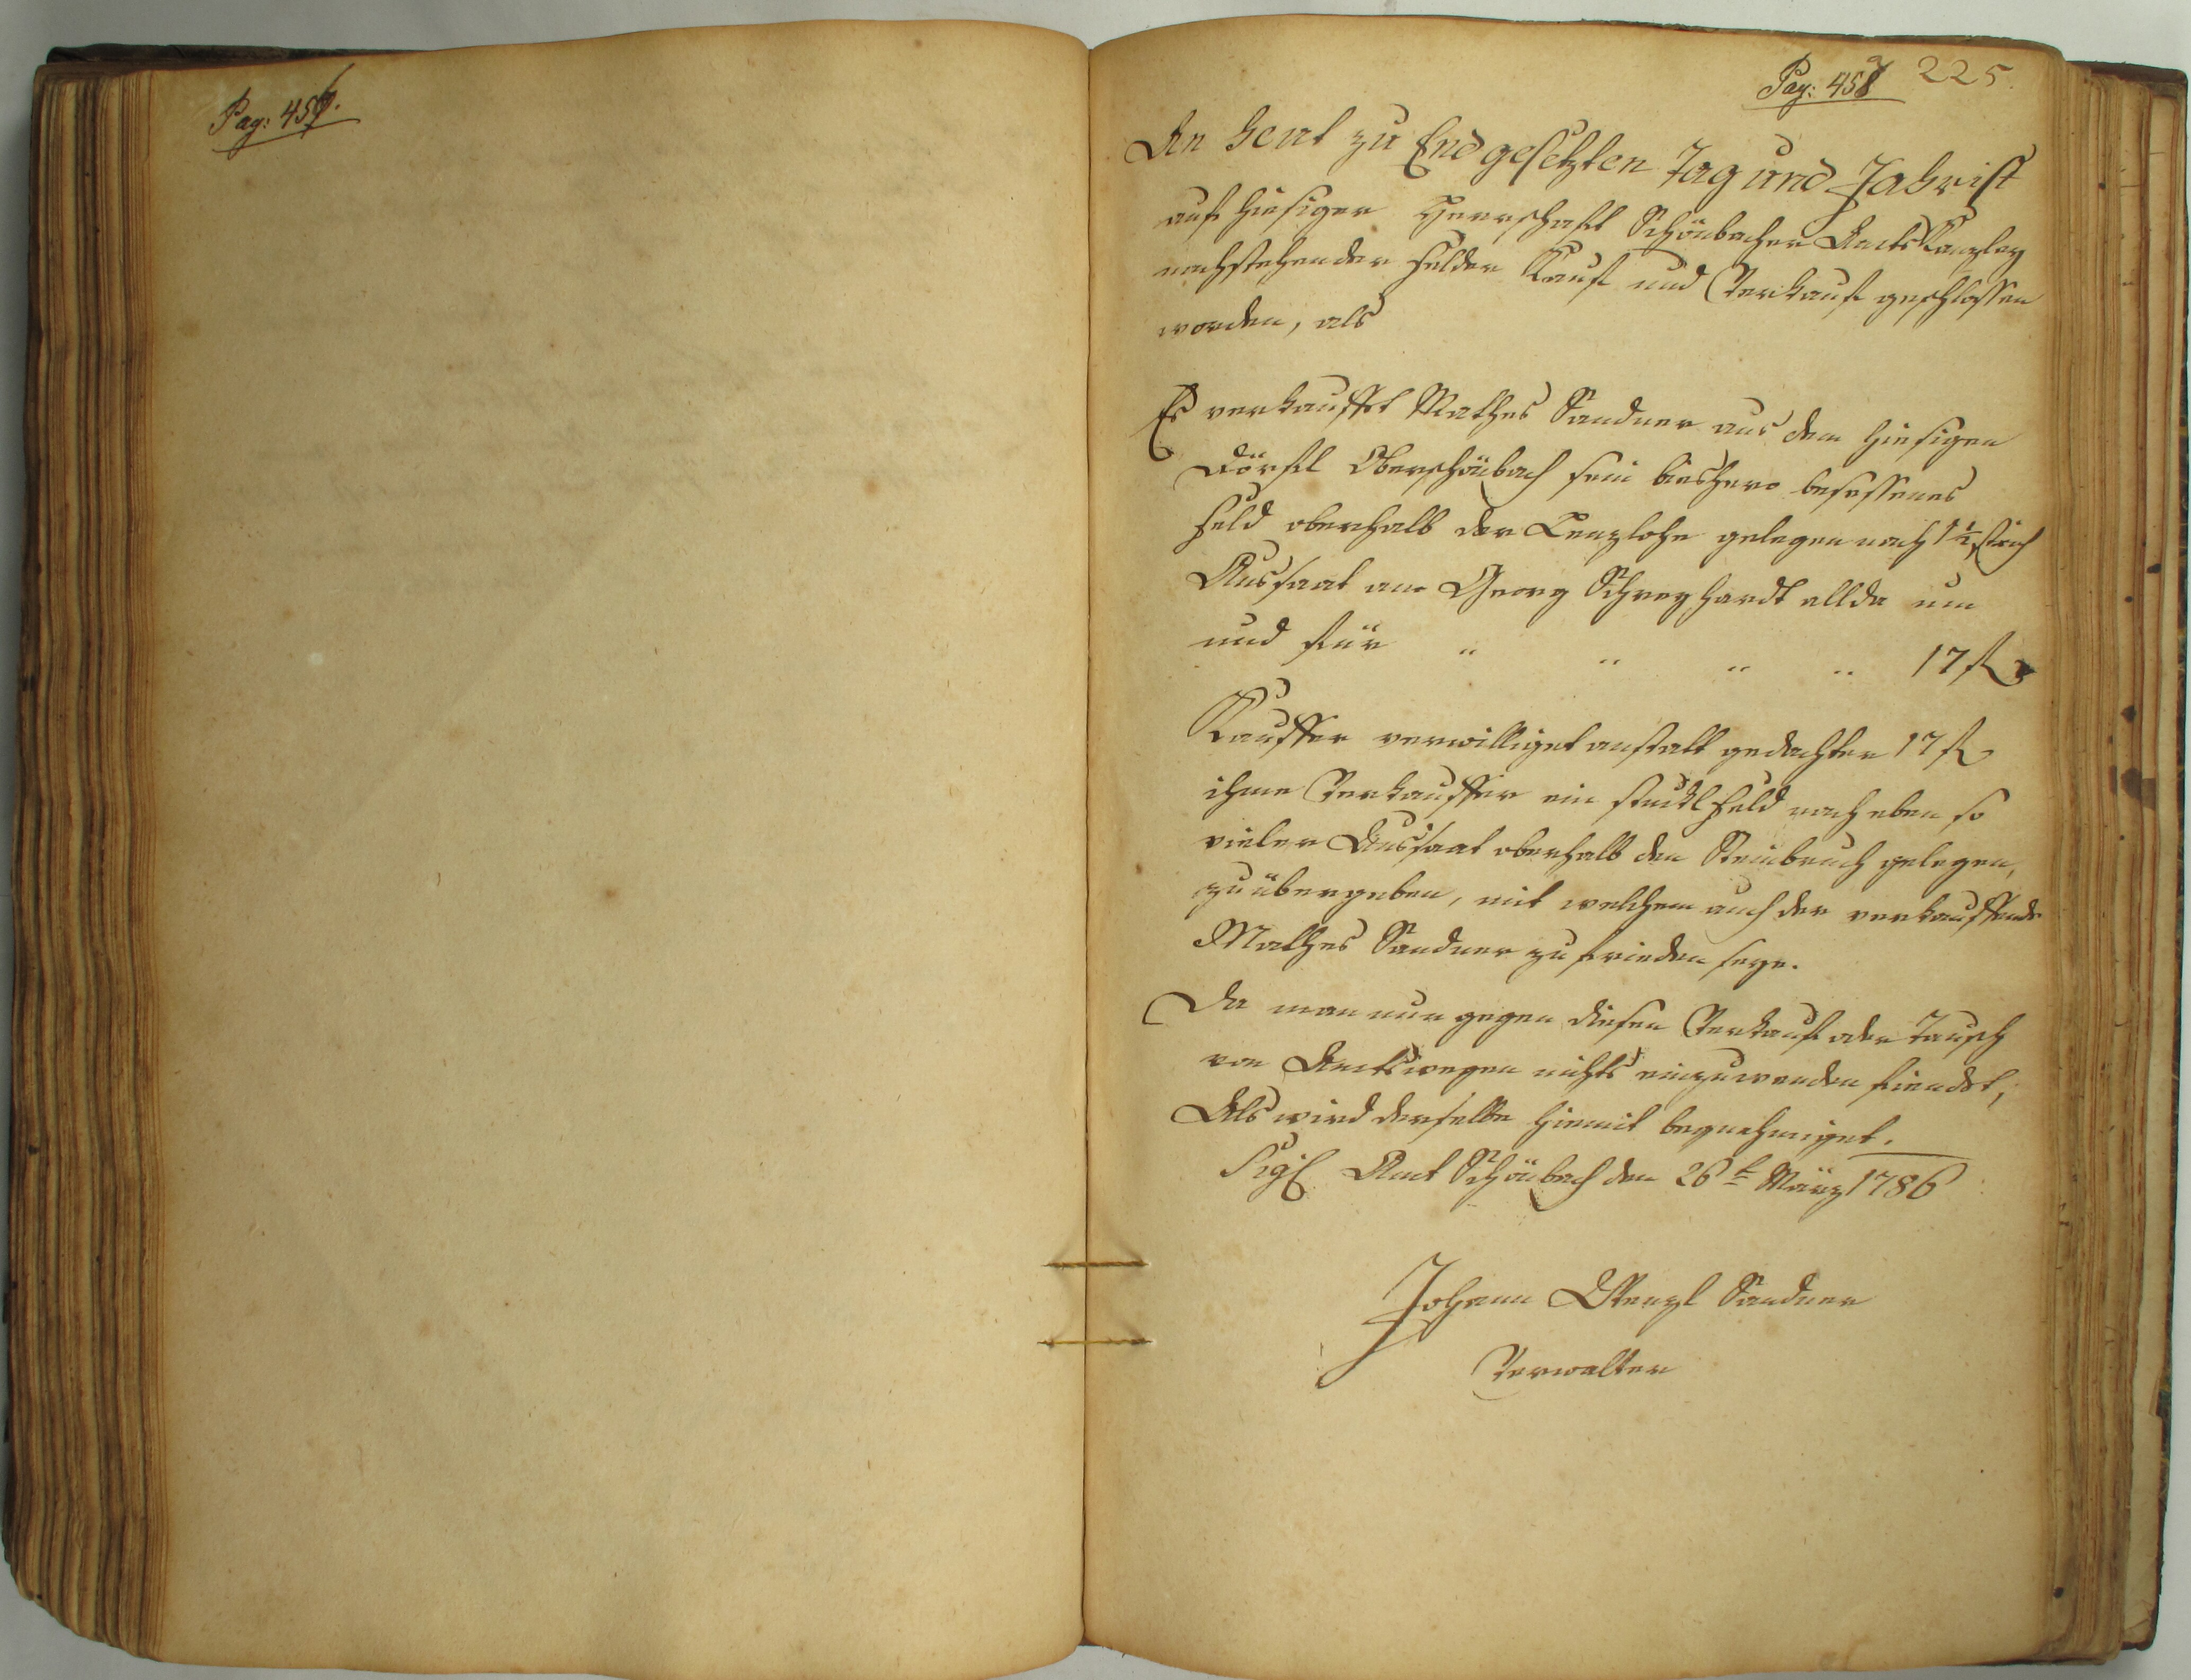 Pag: 456.
Pag: 457 225.
An heut zu End gesetzten Tag und Jahr ist
auf hiesiger Herrschaft Schönbacher Amts Kanzley
nachstehender Felder Kauf und Verkauf geschlossen
worden, als
Es verkaufft Mathes Sandner aus dem hiesigen
Dörfl Oberschönbach sein bishero besessenes
Feld oberhalb der gelegen nach 1 1/2 strich
Aussaat an Georg Schreghardt allda um
und für " " " " 17 fl
Kauffer verwilliget anstatt gedachter 17 fl
ihme Verkauffer ein stuckl Feld nach eben so
vieler Aussaat oberhalb den Steinbruch gelegen,
zu übergeben, mit welchem auch der verkauffende
Mathes Sandner zu frieden seye.
Da man nun gegen diesen Verkauf oder Tausch
von Amtswegen nichts einzuwenden fiendet,
Als wird derselbe hiemit begnehmiget.
Sigl Amt Schönbach den 26t März 1786
Johann Wenzl Sandner
Verwalter